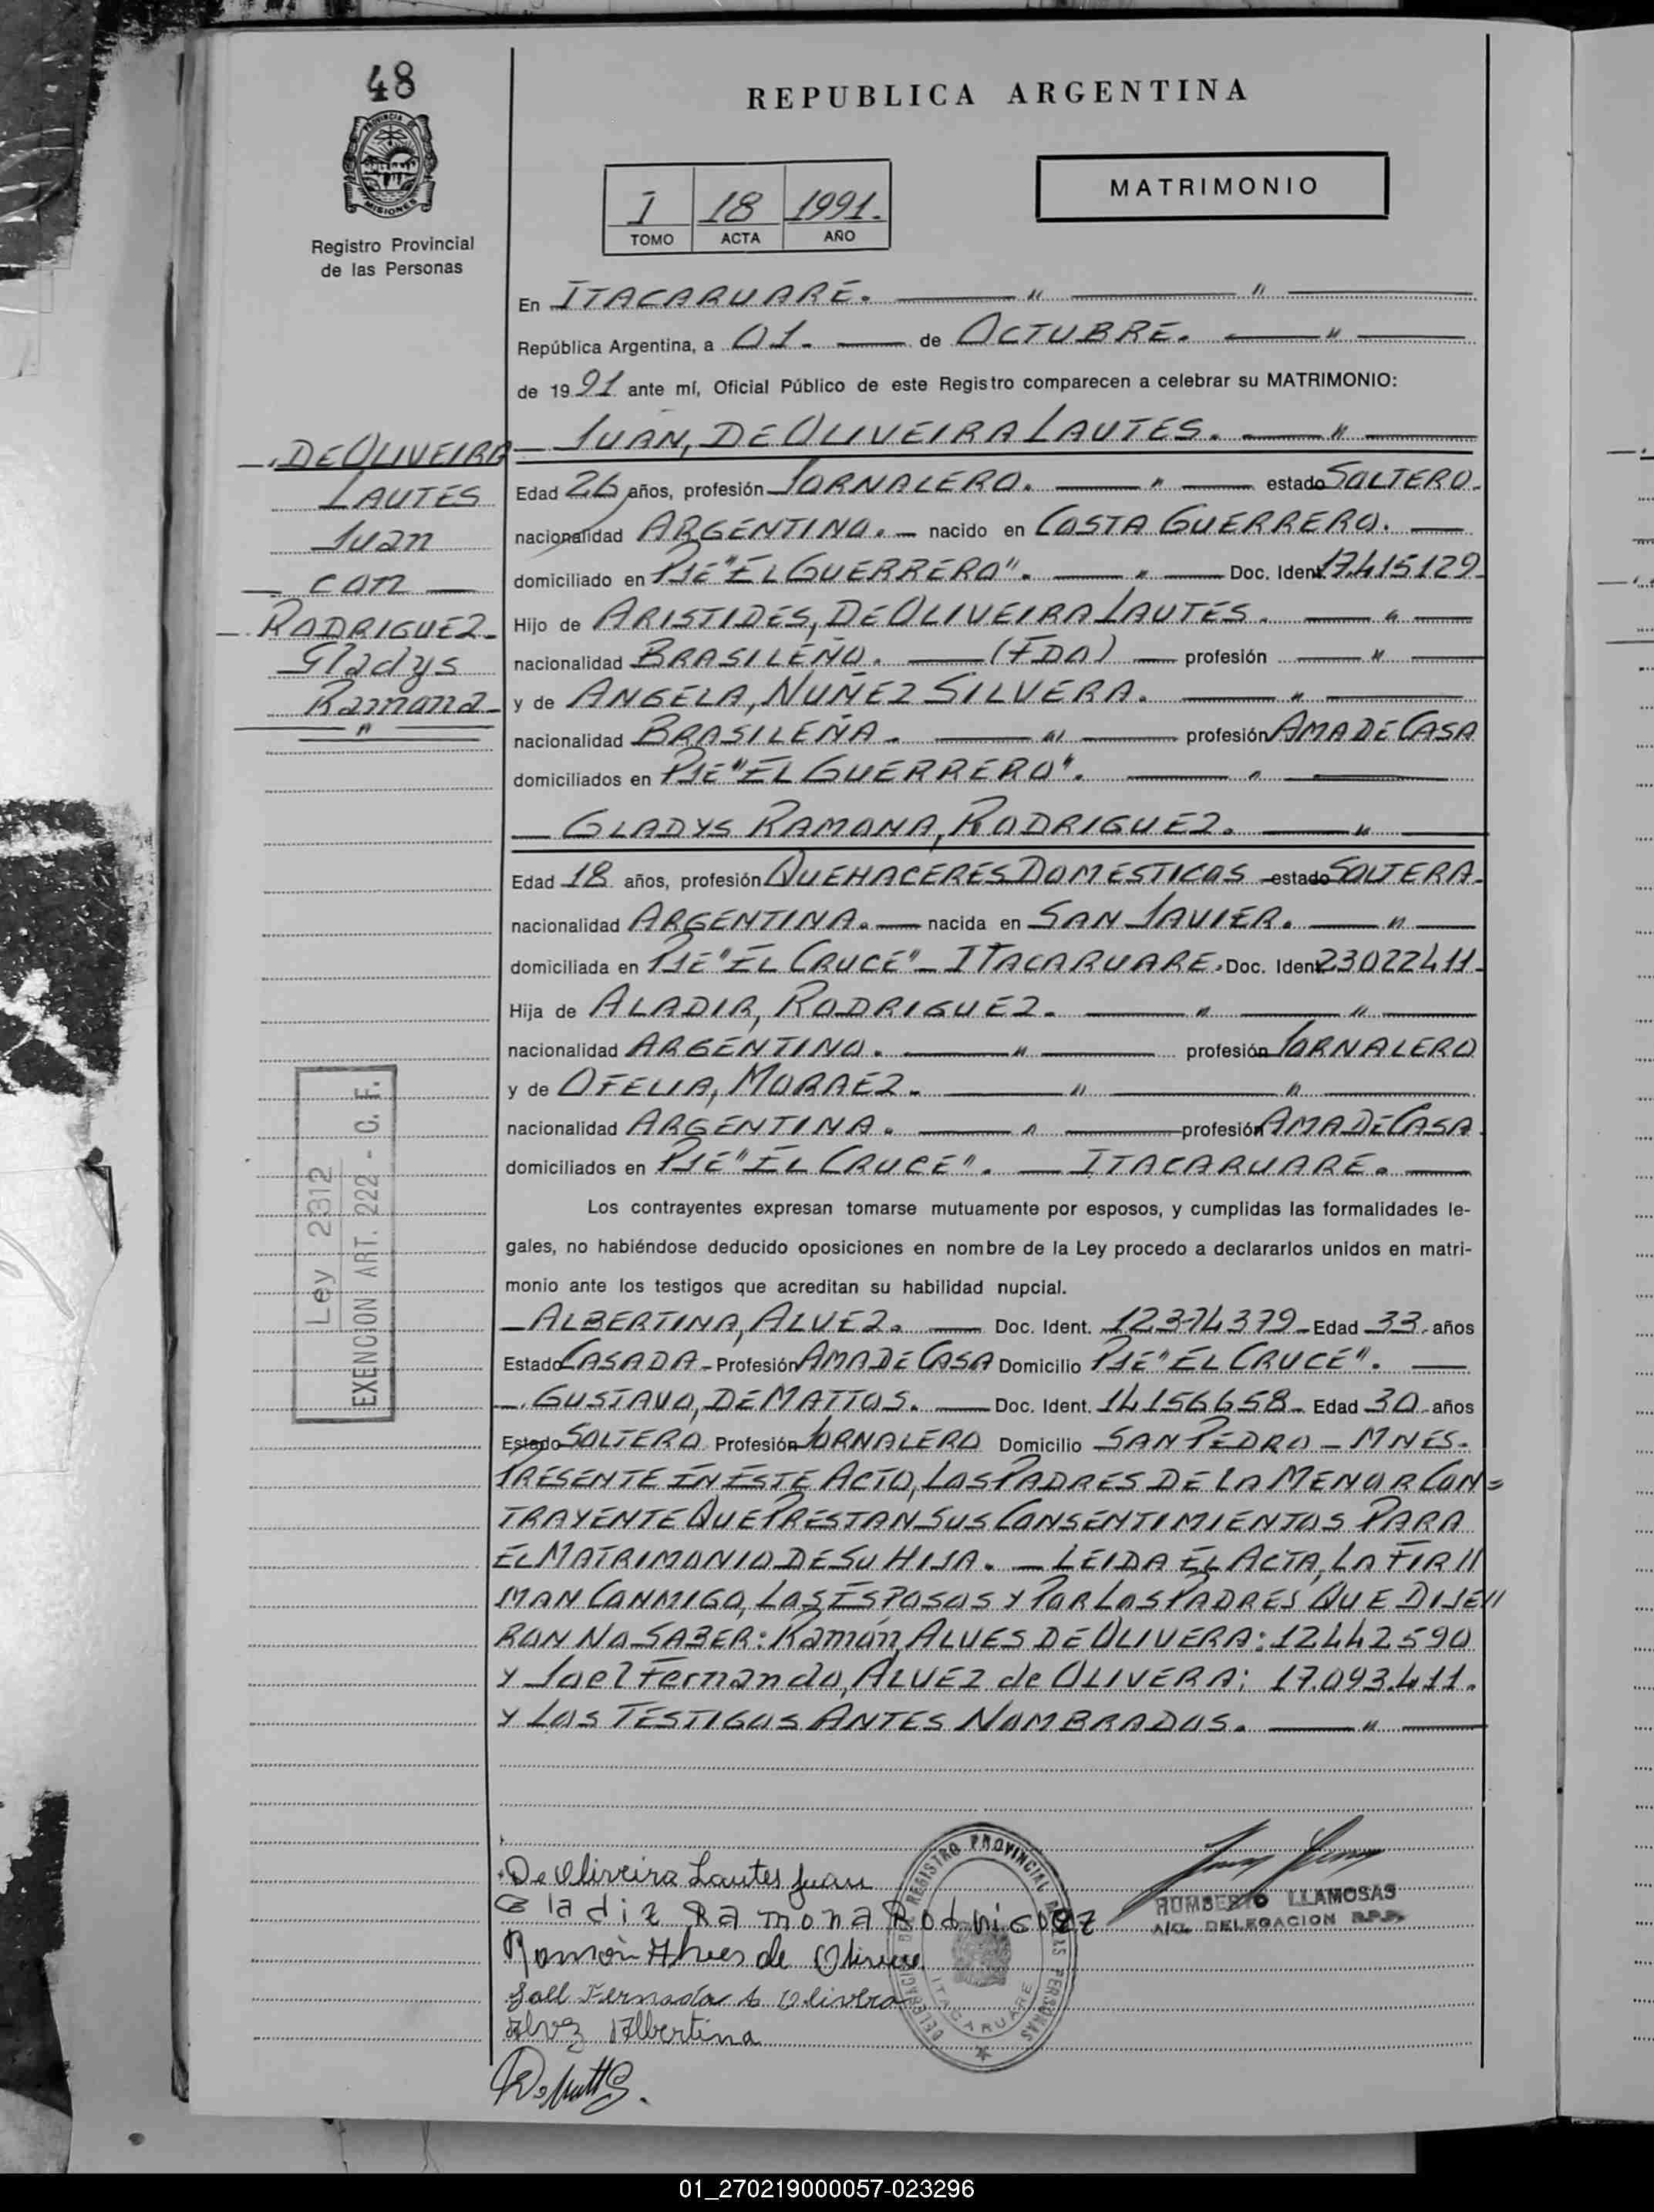 48
REPUBLICA ARGENTINA
PROVINCIA DE
MISIONES
Registro Provincial
de las Personas
MATRIMONIO
I 18 1991.
TOMO ACTA AÑO
En ITACARUARE. " "
República Argentina, a 01. de OCTUBRE. "
de 1991 ante mí, Oficial Público de este Registro comparecen a celebrar su MATRIMONIO:
DE OLIVEIRA
LAUTES
Juan
con
RODRIGUEZ
Gladys
Ramona
"
JUAN, DE OLIVEIRA LAUTES. "
Edad 26 años, profesión JORNALERO. " estado SOLTERO.
nacionalidad ARGENTINO. nacido en COSTA GUERRERO.
domiciliado en PJE "EL GUERRERO". " Doc. Ident 17.415129
Hijo de ARISTIDES, DE OLIVEIRA LAUTES. "
nacionalidad BRASILEÑO. (FDO) profesión "
y de ANGELA, NUÑEZ SILVERA. "
nacionalidad BRASILEÑA. " profesión AMA DE CASA
domiciliados en PJE "EL GUERRERO". "
GLADYS RAMONA, RODRIGUEZ. "
Edad 18 años, profesión QUEHACERES DOMESTICOS estado SOLTERA.
nacionalidad ARGENTINA. nacida en SAN JAVIER. "
domiciliada en PJE "EL CRUCE" - ITACARUARE. Doc. Ident 23022411.
Hija de ALADIR, RODRIGUEZ. " "
nacionalidad ARGENTINO. " profesión JORNALERO
y de OFELIA, MORAEZ. " "
nacionalidad ARGENTINA. " profesión AMA DE CASA
domiciliados en PJE "EL CRUCE". - ITACARUARE.
Los contrayentes expresan tomarse mutuamente por esposos, y cumplidas las formalidades le-
gales, no habiéndose deducido oposiciones en nombre de la Ley procedo a declararlos unidos en matri-
monio ante los testigos que acreditan su habilidad nupcial.
Ley 2312
EXENCION ART. 222 - C. F.
ALBERTINA, ALVEZ. Doc. Ident. 12374379 Edad 33 años
Estado CASADA - Profesión AMA DE CASA Domicilio PJE "EL CRUCE".
GUSTAVO, DE MATTOS. Doc. Ident. 14156658 Edad 30 años
Estado SOLTERO Profesión JORNALERO Domicilio SAN PEDRO - MNES.
PRESENTE EN ESTE ACTO, LOS PADRES DE LA MENOR CON=
TRAYENTE QUE PRESTAN SUS CONSENTIMIENTOS PARA
EL MATRIMONIO DE SU HIJA. - LEIDA EL ACTA, LA FIR//
MAN CONMIGO, LOS ESPOSOS Y POR LOS PADRES QUE DIJE//
RON NO SABER: Ramón, ALVES DE OLIVERA: 12442590
Y Joel Fernando, ALVEZ de OLIVERA: 17.093.411.
Y LOS TESTIGOS ANTES NOMBRADOS. "
De Oliveira Lautes Juan
Gladiz Ramona Rodriguez
Ramón Alves de Olivera
Joel Fernado A Olivera
Alvez Albertina
DELEGACION DEL REGISTRO PROVINCIAL DE LAS PERSONAS
ITACARUARE
HUMBERTO LLAMOSAS
A/C. DELEGACION R.P.P.
01_270219000057-023296